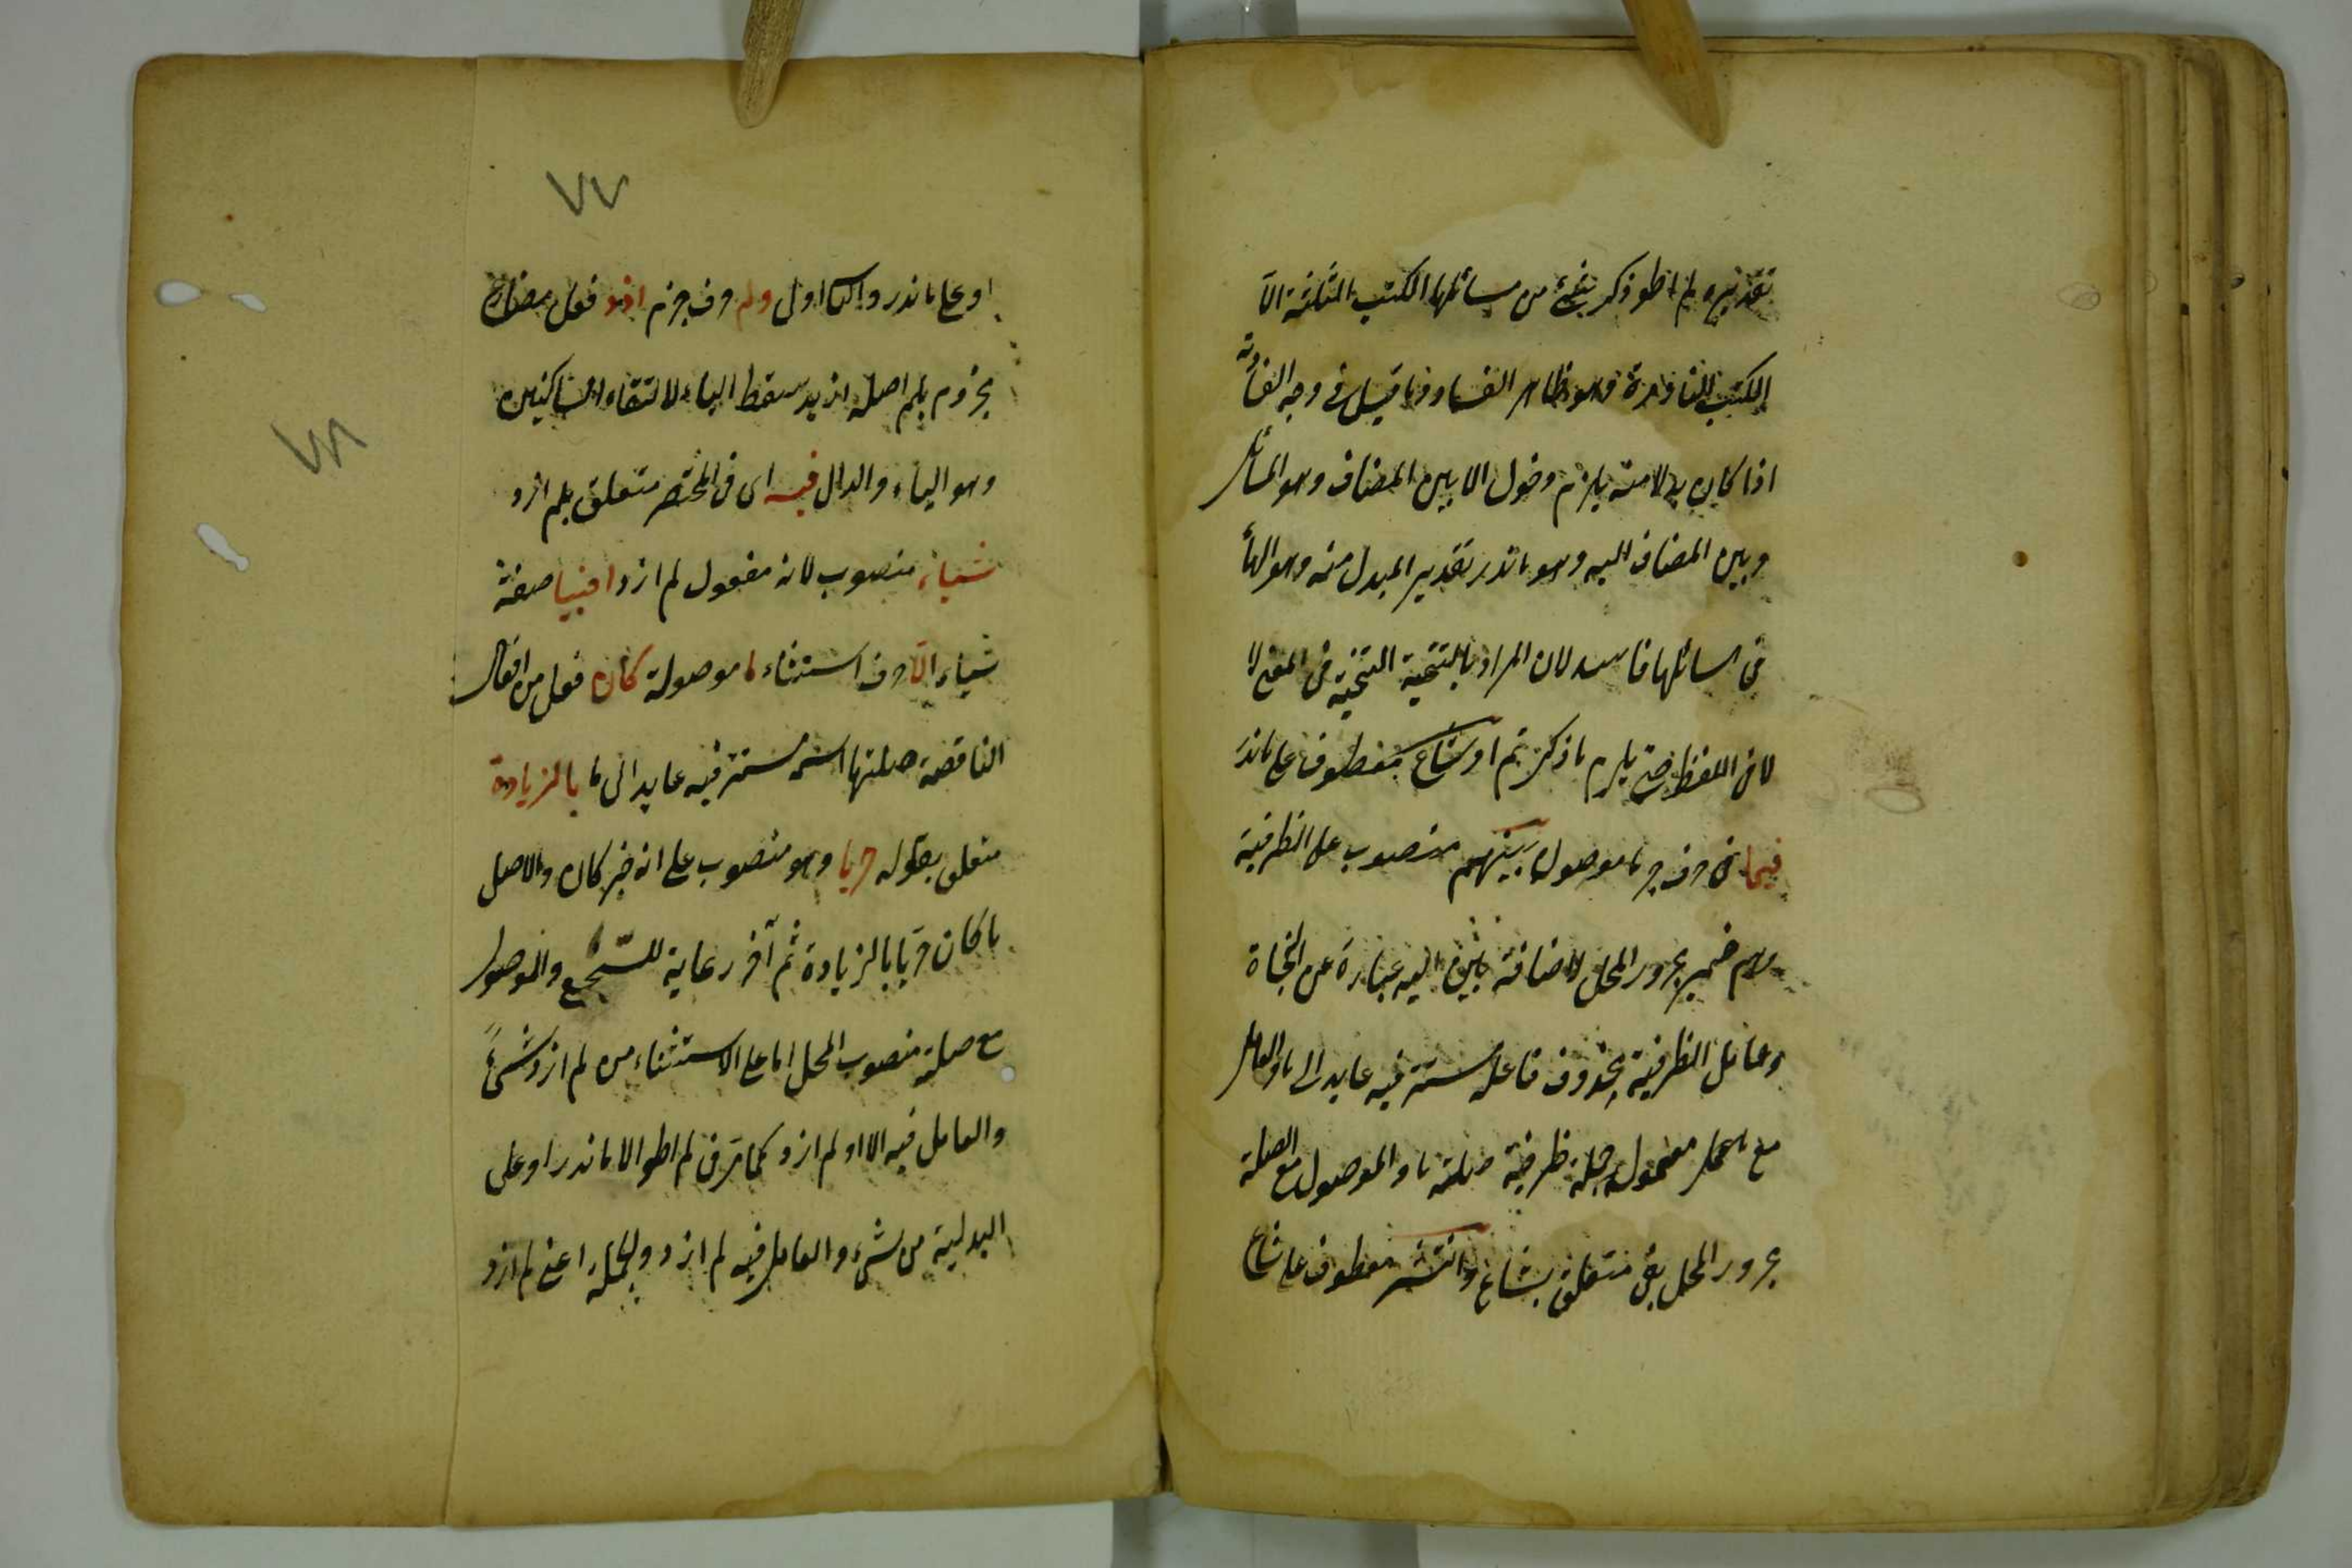 تقديره لم اطو ذكر شئ من مسائلها الكتب الثلثة الا
الكتب النادرة وهو ظاهر الفساد وما قيل فى وجه الفساد
اذا كان بدلا منه يلزم دخول الا بين المضاف وهو المسائل
وبين المضاف اليه وهو ما ندر تقدير المبدل منه وهو الهاء
فى مسائلها فاسد لان المراد بالتنحية التنحية فى المعنى لا
لا فى اللفظ حتى يلزم ما ذكرتم او شاع معطوف على ما ندر
فيما فى حرف جر ما موصولة بينهم منصوب على الظرفية
وهم ضمير مجرور المحل لاضافة بين اليه عبارة عن النحاة
وعامل الظرفية محذوف فاعله مستتر فيه عايد الى ما والعامل
مع معموله جملة ظرفية صلته ما والموصول مع الصلة
مجرور المحل بفى متعلق بشاع وانتشر معطوف على شاع
٧٧
او على ما ندر ولم حرف جزم ازد فعل مضارع
مجزوم بلم اصله ازيد سقط الياء لالتقاء الساكنين
وهو الياء والدال فيه اى فى المختصر متعلق بلم ازد
شياء منصوب لانه مفعول لم ازد اجنبيا صفة
شياء الا حرف استثناء ما موصولة كان فعل من افعال
الناقصة صلتها اسمه مستتر فيه عايد الى ما بالزيادة
متعلق بقوله حريا وهو منصوب على انه خبر كان والاصل
ما كان حريا بالزيادة ثم آخر رعاية للسجع والموصول
مع صلته منصوب المحل اما على الاستثناء من لم ازد شئ
والعامل فيه الا او لم ازد كما مر فى لم اطو الا ما ندر او على
البدلية من شئ والعامل فيه لم ازد والجملة اعنى لم ازد
٧٨